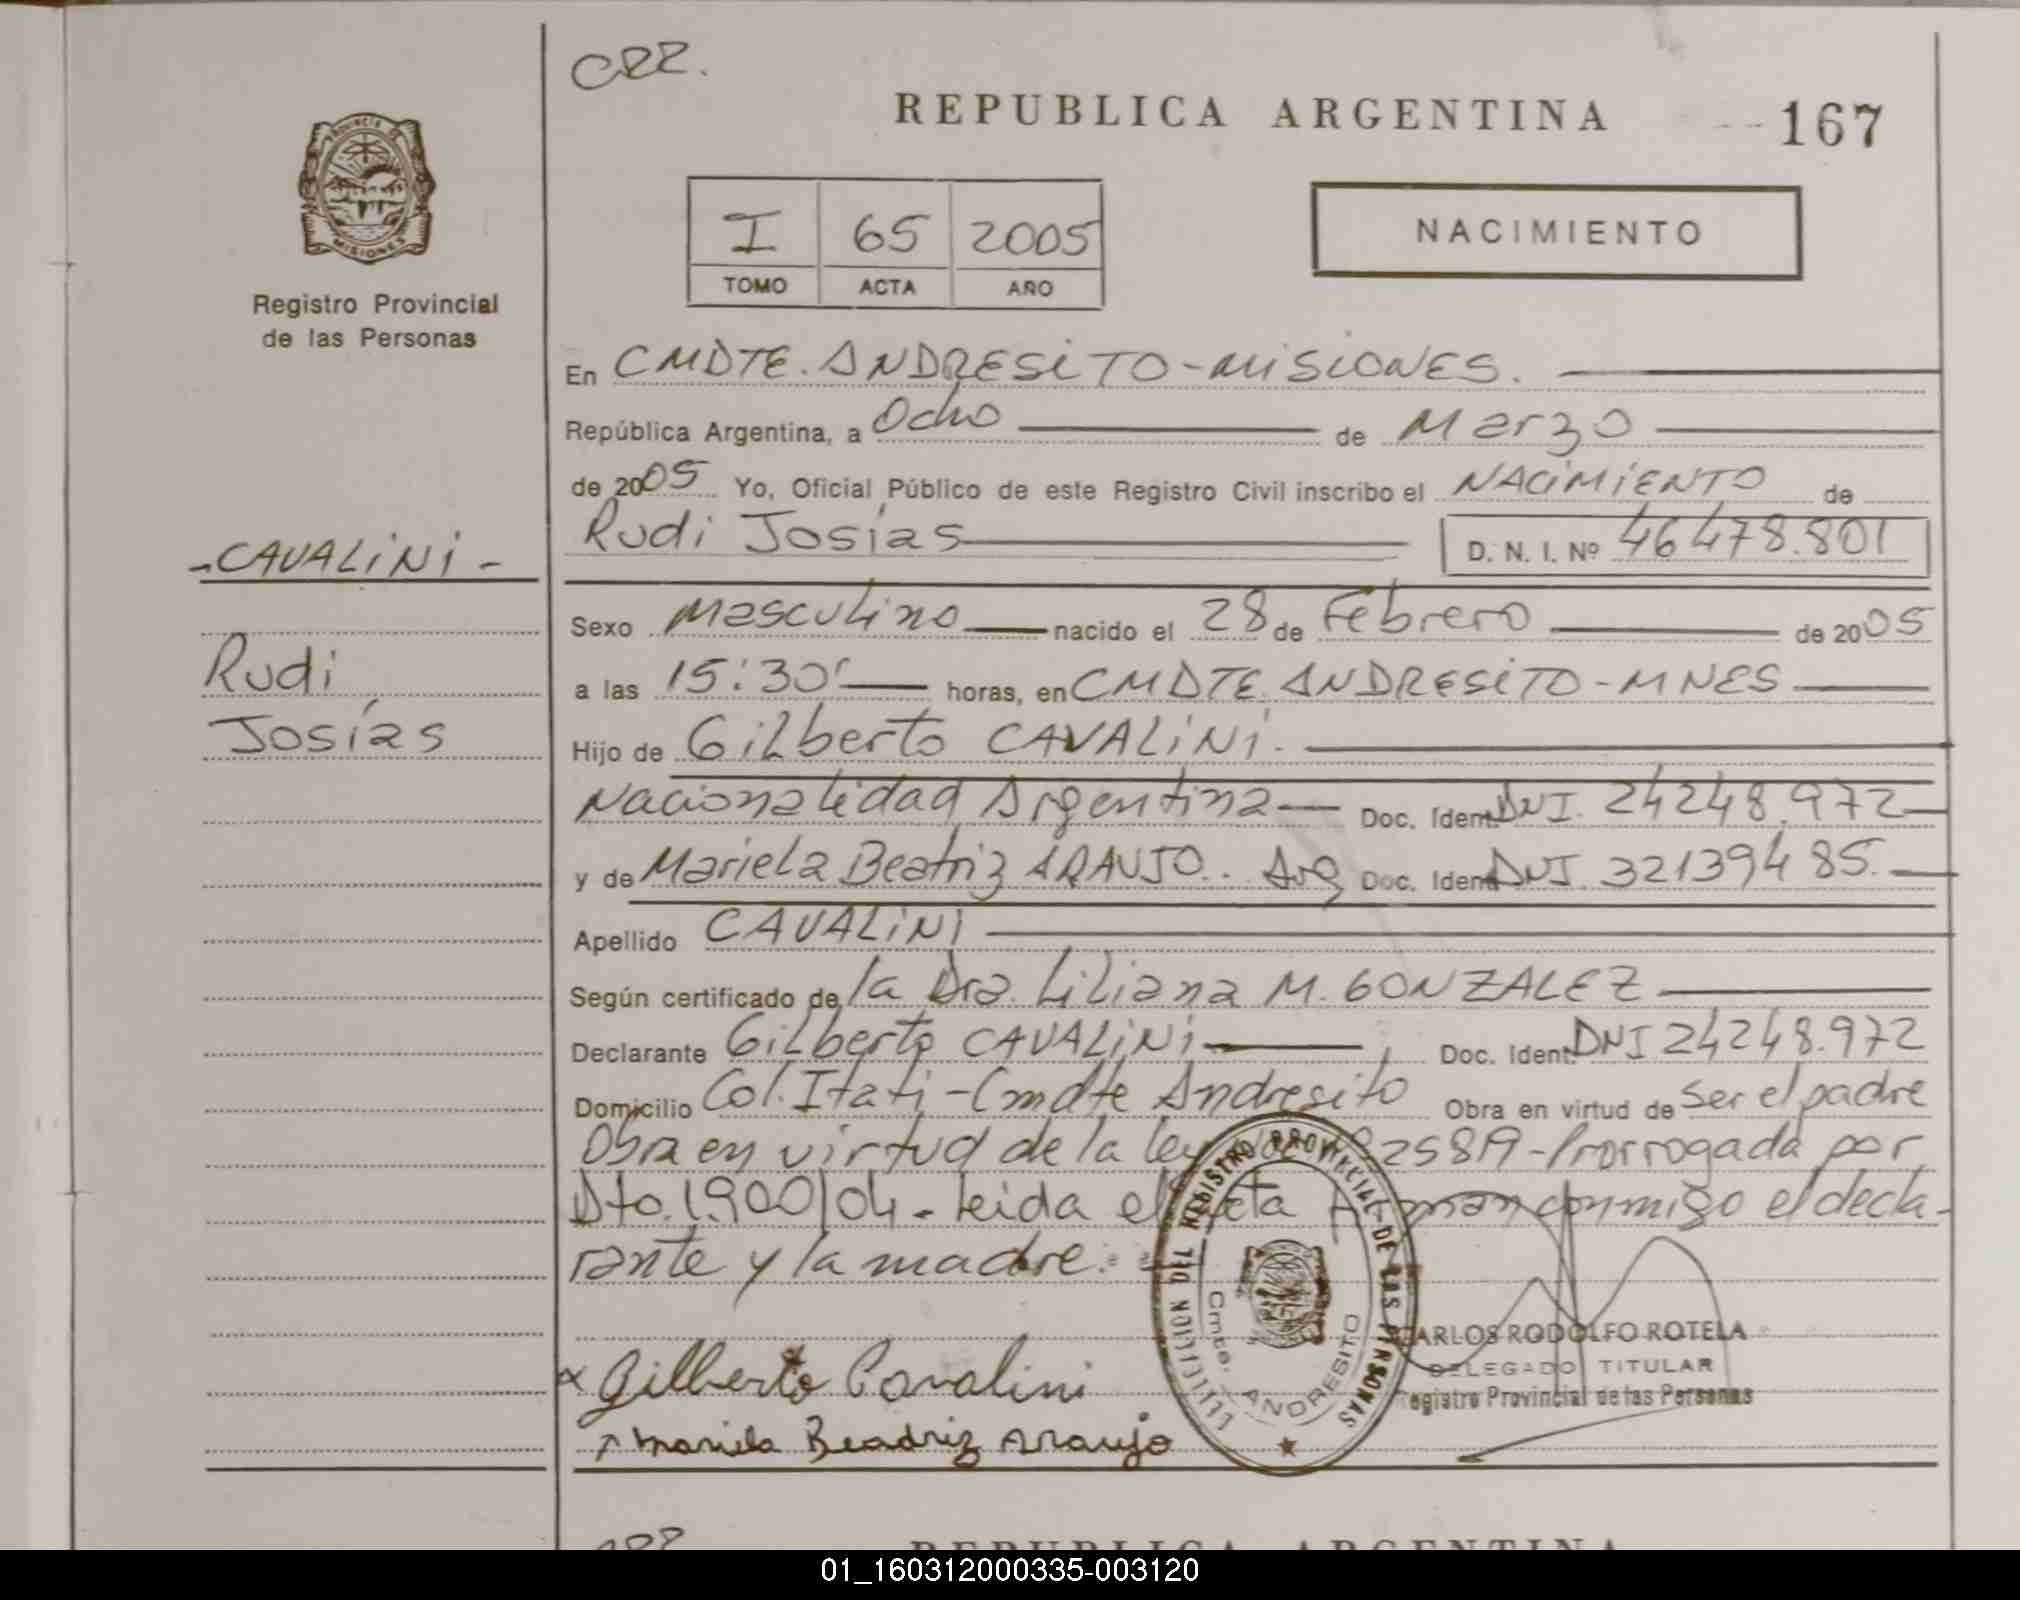 CRR.
REPUBLICA ARGENTINA
167
PROVINCIA DE
MISIONES
Registro Provincial
de las Personas
I 65 2005
TOMO ACTA AÑO
NACIMIENTO
En CMDTE. ANDRESiTO-MiSiONES.
República Argentina, a Ocho de Marzo
de 2005 Yo, Oficial Público de este Registro Civil inscribo el NACiMiENTO de
Rudi Josías D. N. I. Nº 46478.801
-CAVALiNi-
Rudi
Josías
Sexo Masculino nacido el 28 de Febrero de 2005
a las 15:30' horas, en CMDTE. ANDRESiTO-MNES
Hijo de Gilberto CAVALiNi.
Nacionalidad Argentina Doc. Ident. DNI. 24248.972
y de Mariela Beatriz ARAUJO.. Arg Doc. Ident DNI. 32139485.
Apellido CAVALiNi
Según certificado de la Dra. Liliana M. GONZALEZ
Declarante Gilberto CAVALiNi Doc. Ident. DNI 24248.972
Domicilio Col. Itati-Cmdte Andresito Obra en virtud de Ser el padre
Obra en virtud de la ley 25819-Prorrogada por
Dto. 1.900/04. leida el acta Firman conmigo el decla-
rante y la madre.
DEL REGISTRO PROVINCIAL DE LAS PERSONAS
Cmte. ANDRESITO
CARLOS RODOLFO ROTELA
DELEGADO TITULAR
Registro Provincial de las Personas
x Gilberto Cavalini
x Mariela Beadriz Araujo
REPUBLICA ARGENTINA
01_160312000335-003120